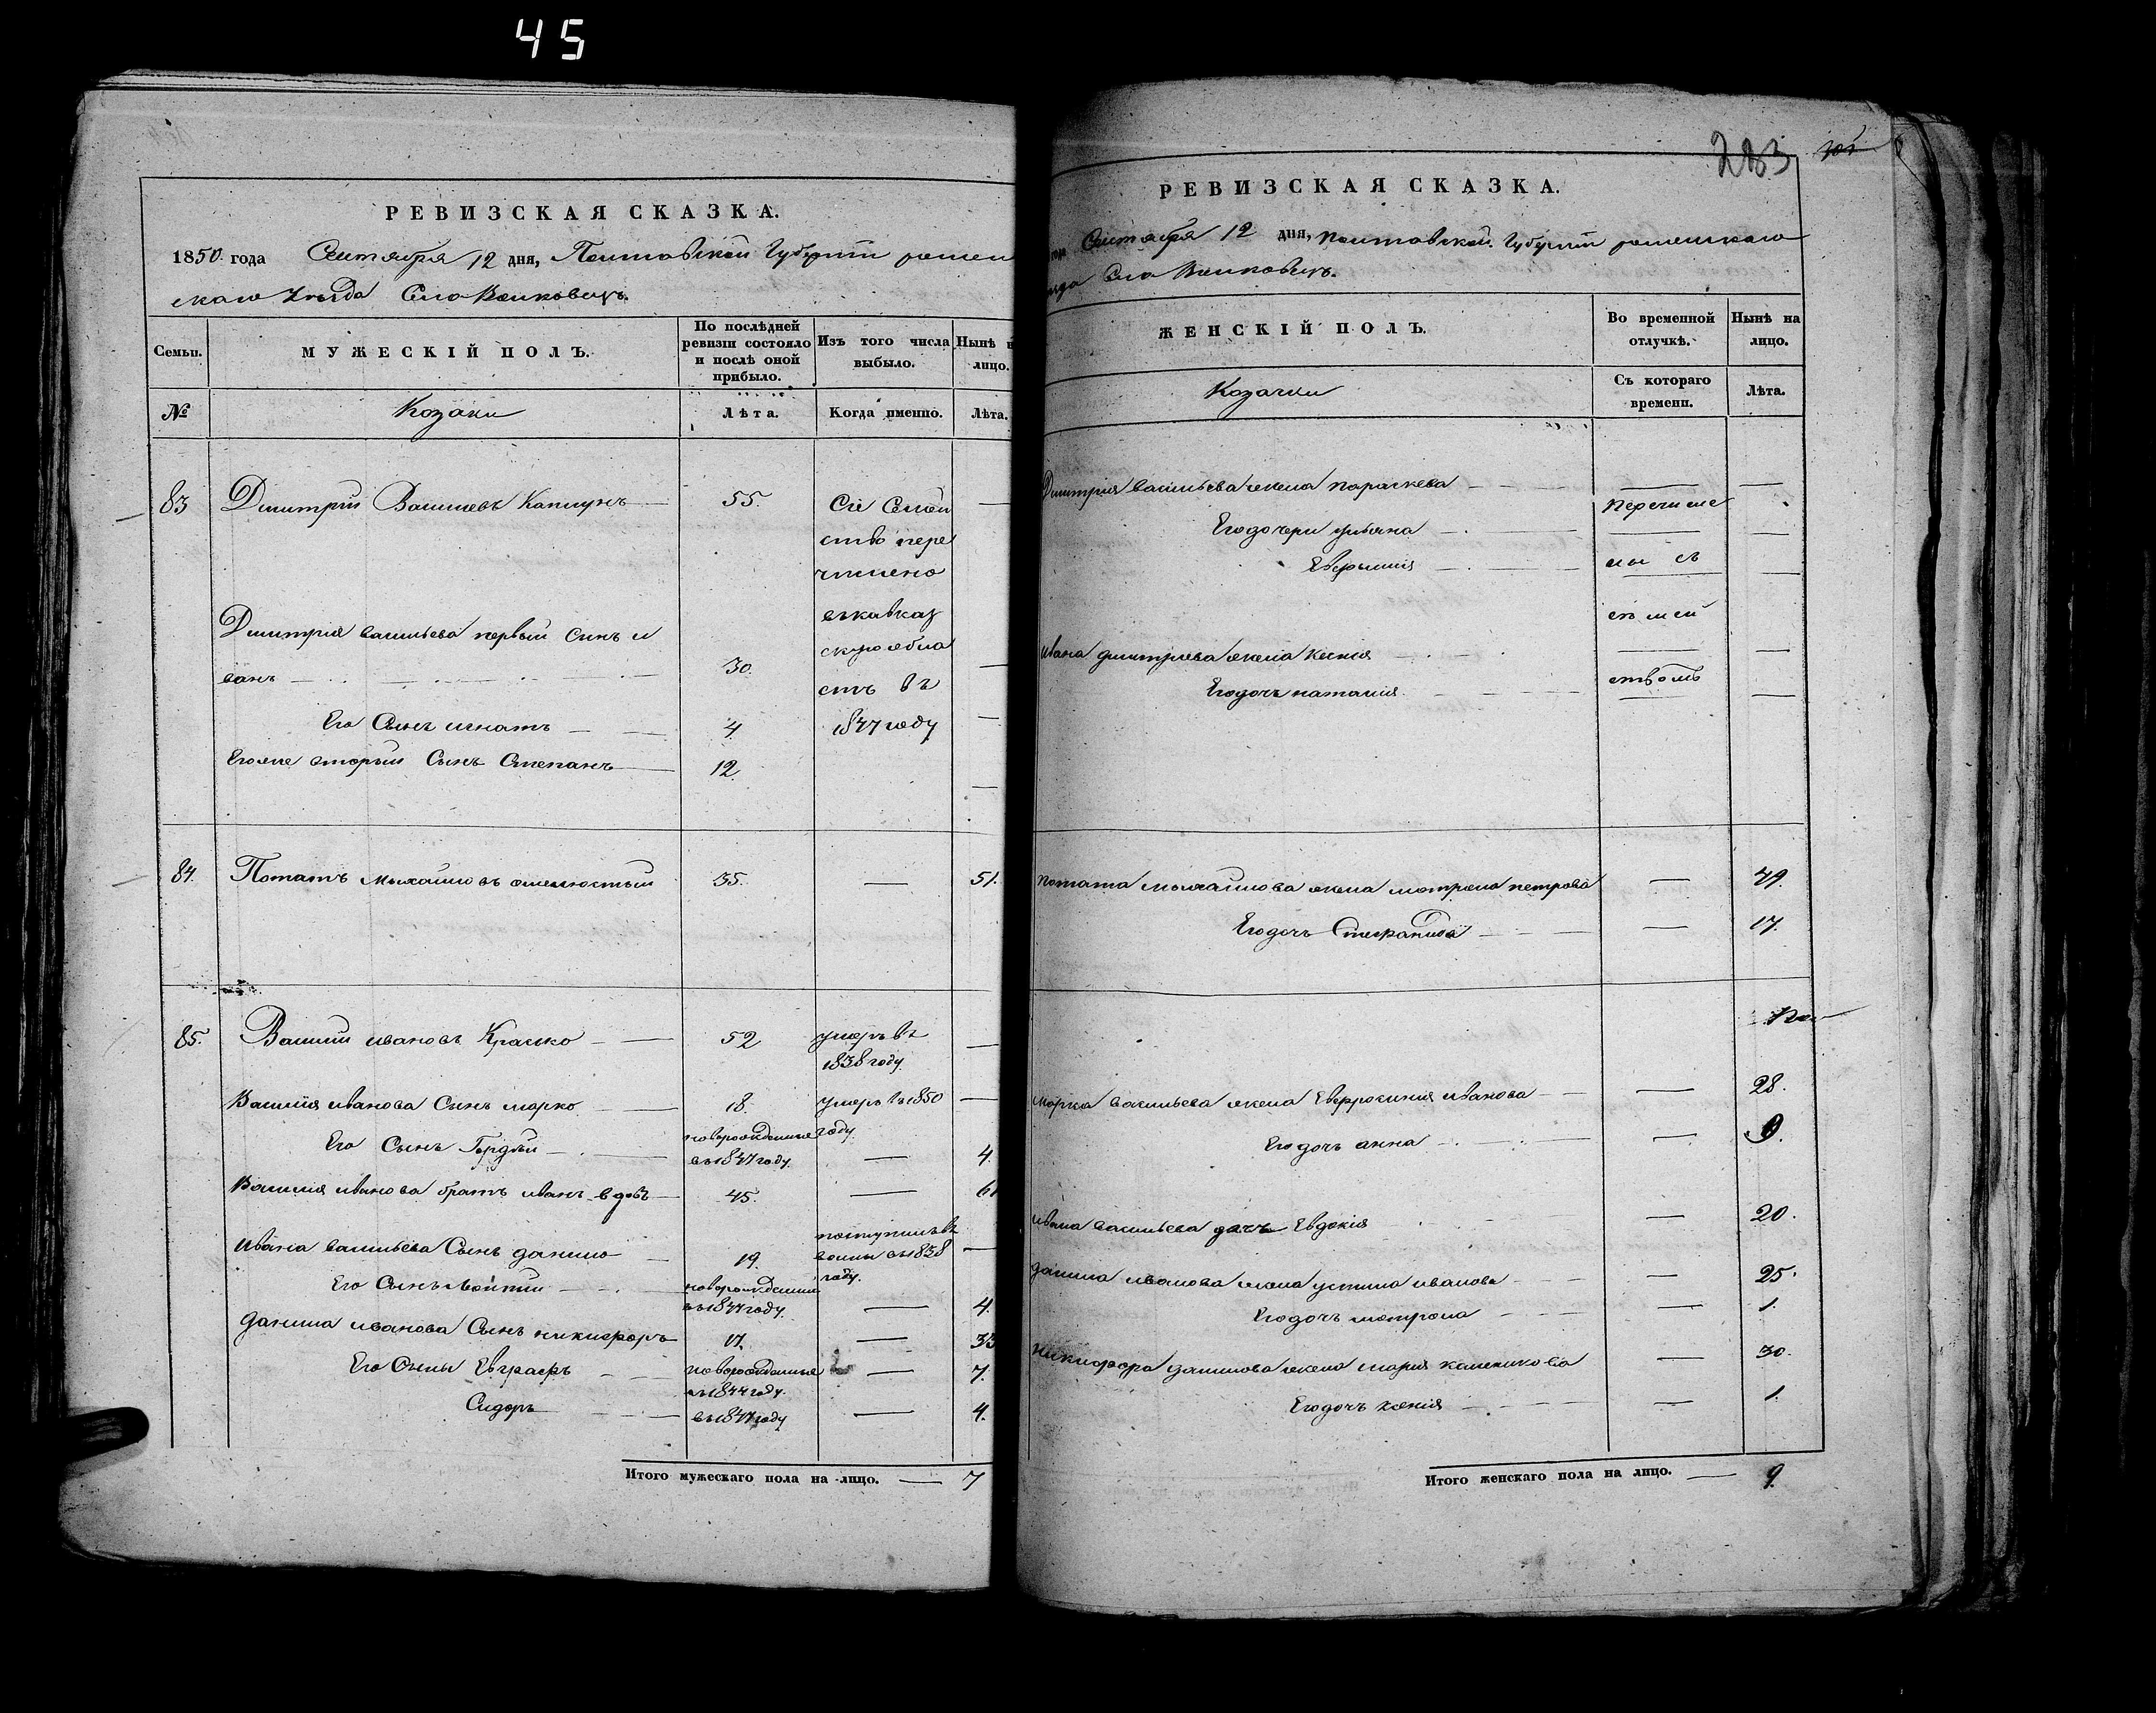 45
РЕВИЗСКАЯ СКАЗКА.
1850 года Сентября 12 дня, Полтавской Губерніи ромен
скаго Уѣзда Село Волковецъ.
Семьи.
МУЖЕСКІЙ ПОЛЪ.
По послѣдней ревизіи состояло и послѣ оной прибыло.
Изъ того числа выбыло.
Нынѣ н лицо.
№
Козаки
Лѣта.
Когда именно.
Лѣта.
83 Дмитрій Васильевъ 55. Сіе Семей
ство пере
числено
Дмитрія васильева первый сынъ и
ванъ 30.
въ кавказ
скую обла
сть въ
Его Сынъ игнатъ 4. 1847 году
Егоже вторый Сынъ Степанъ 12.
84. Потапъ Михайловъ 35. — 51.
85. Василій ивановъ Красько 52 умеръ въ
1838 году.
Василія иванова Сынъ марко 18. умеръ въ 1850
году.
Его Сынъ Гордѣй новорожденные
въ 1847 году. — 4.
Василія иванова братъ иванъ вдовъ 45. — 61
ивана васильева Сынъ данило 19. поступилъ въ
въ 1838
году.
Его Сынъ новорожденный
въ 1847 году. — 4.
данила иванова Сынъ никифоръ 17. — 33
Его Сыны Евграфъ новорожденные
въ 1844 году. — 7.
Сидоръ въ 1847 году — 4.
Итого мужескаго пола на лицо. — 7
283
РЕВИЗСКАЯ СКАЗКА.
года Сентября 12 дня, полтавской Губерніи роменскаго
Село Волковецъ.
ЖЕНСКІЙ ПОЛЪ.
Во временной отлучкѣ.
Нынѣ на лицо.
Козачки
Съ котораго времени.
Лѣта.
Дмитрія васильева жена параскева —
перечисле
Его дочери ульяна —
ны съ
семей
ивана дмитрева жена ксенія —
ствомъ
Его дочь наталія —
потапа михайлова жена мотрона петрова — 49.
Его дочь Стефанида — 17.
марка васильева жена Евфросинія иванова — 28.
Его дочь анна — 9.
ивана васильева дочь Евдокія — 20.
данила иванова жена устина иванова — 25.
Его дочь мотрона — 1.
никифора данилова жена марія — 30.
Его дочь ксенія — 1.
Итого женскаго пола на лицо. — 9.